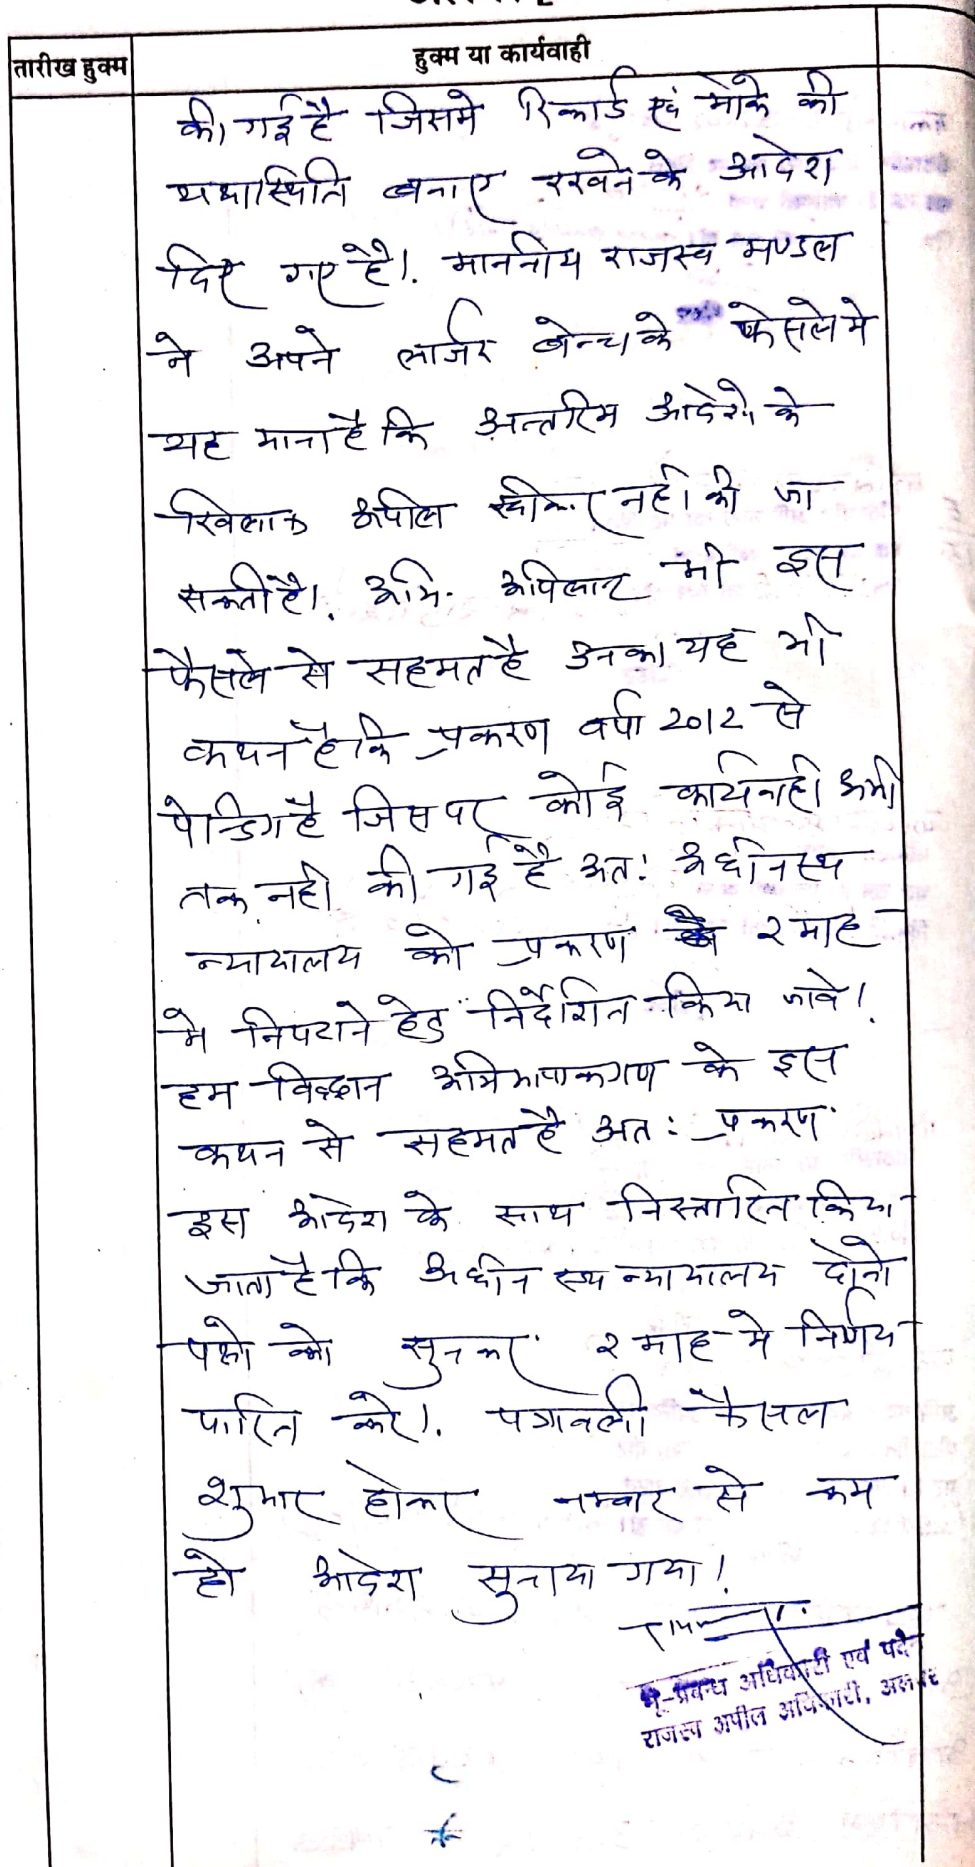 तारीख हुक्म
हुक्म या कार्यवाही
की गई है जिसमे रिकार्ड एवं मौके की
यथास्थिति बनाए रखने के आदेश
दिए गए है। माननीय राजस्व मण्डल
ने अपने लार्जर बेन्च के फैसले मे
यह माना है कि अन्तरिम आदेशो के
खिलाफ अपील स्वीकार नही की जा
सकती है। अभि. अपिलांट भी इस
फैसले से सहमत है उनका यह भी
कथन है कि प्रकरण वर्ष 2012 से
पेन्डिग है जिस पर कोई कार्यवाही अभी
तक नही की गई है अत: अधीनस्थ
न्यायालय को प्रकरण २ माह
मे निपटाने हेतु निर्देशित किया जावे।
हम विद्धान अभिभाषकगण के इस
कथन से सहमत है अत: प्रकरण
इस आदेश के साथ निस्तारित किया
जाता है कि अधीनस्थ न्यायालय दोनो
पक्षो को सुनकर २ माह मे निर्णय
पारित करे। पत्रावली फैसल
शुमार होकर नम्बर से कम
हो आदेश सुनाया गया।
भू-प्रबन्ध अधिकारी एवं पदेन
राजस्व अपील अधिकारी, अलवर